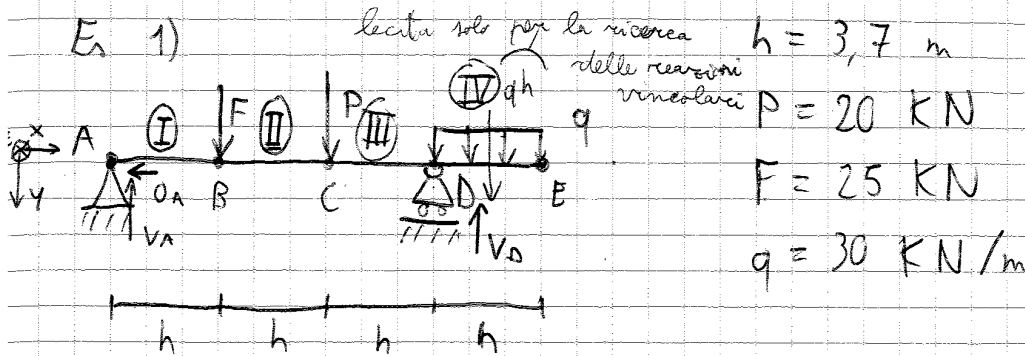 Es 1)
lecita solo per la ricerca
delle reazioni
vincolari
h = 3,7 m
P = 20 KN
F = 25 KN
q = 30 KN/m
I F II P III IV qh q
x A
y OA B C D E
VA VD
h h h h